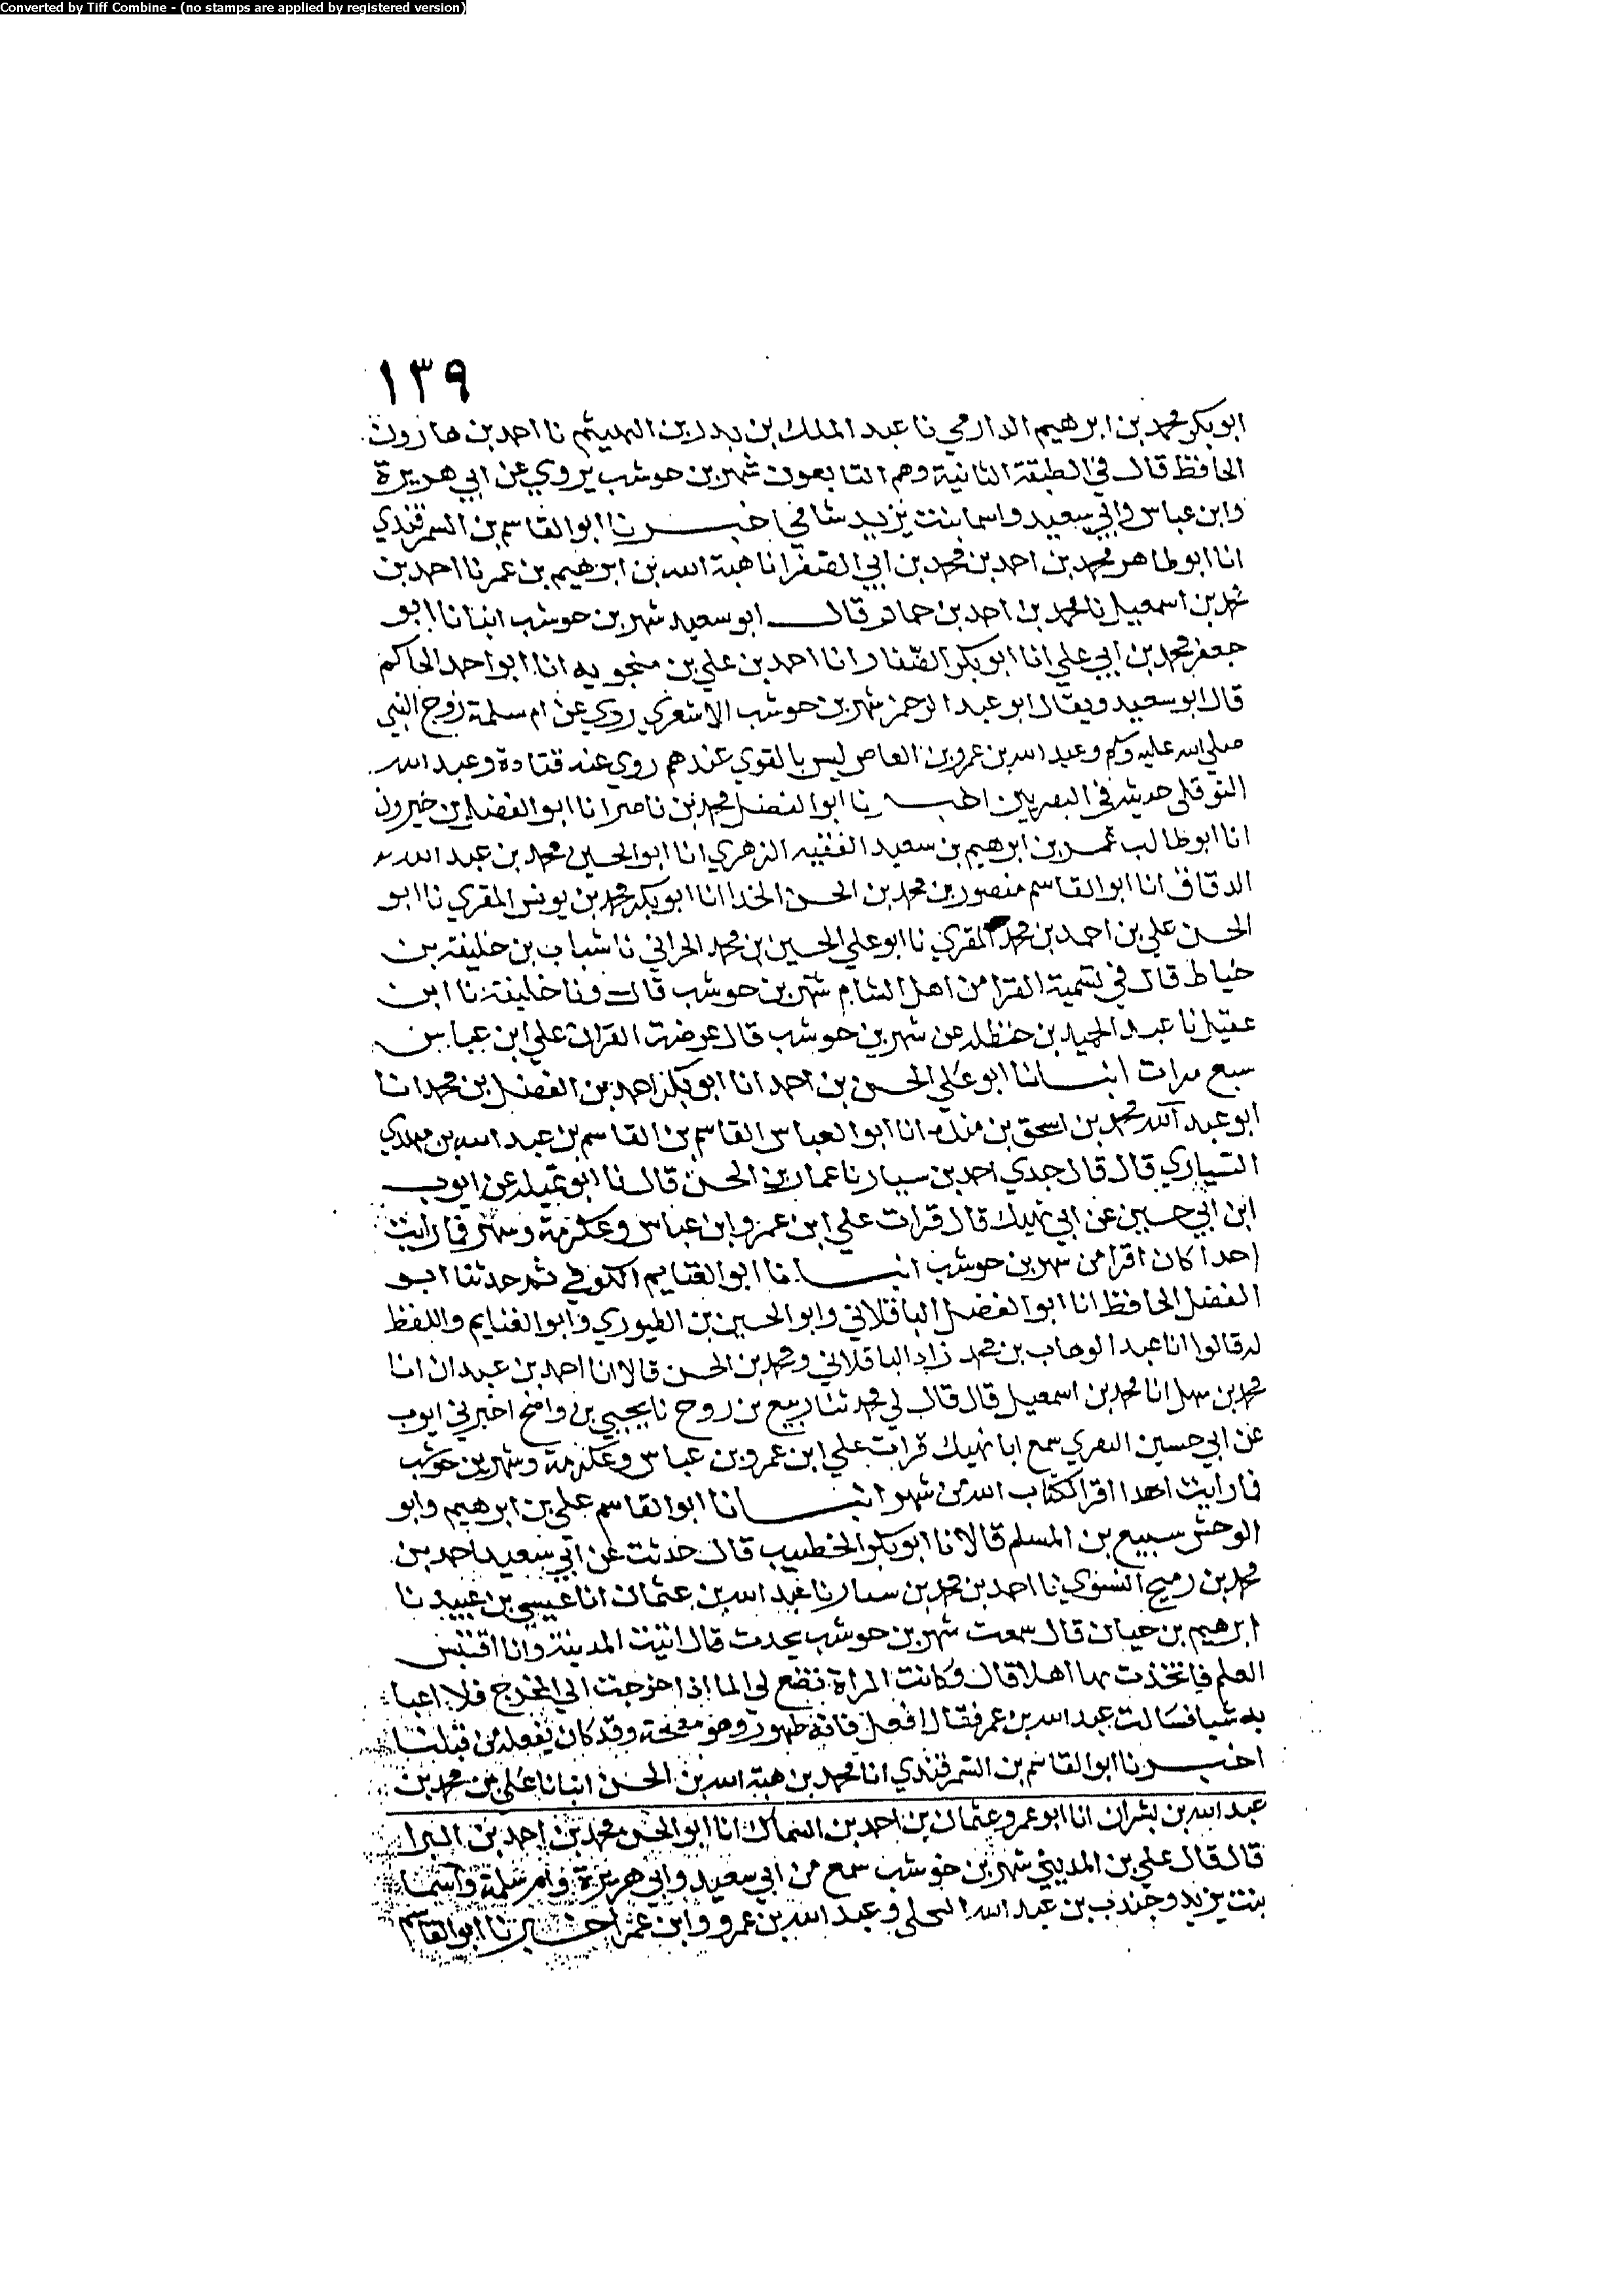 Converted by Tiff Combine - (no stamps are applied by registered version)
١٣٩
ابو بكر محمد بن ابرهيم الدارمي نا عبد الملك بن بدر بن الهيثم نا احمد بن هارون
الحافظ قال في الطبقة الثانية وهم التابعون شهر بن حوشب يروي عن ابي هريرة
وابن عباس وابي سعيد واسما بنت يزيد شامي اخبرنا ابو القاسم بن السمرقندي
انا ابو طاهر محمد بن احمد بن محمد بن ابي الصقر انا هبة الله بن ابرهيم بن عمر نا احمد بن
محمد بن اسمعيل نا محمد بن احمد بن حماد قال ابو سعيد شهر بن حوشب انبانا ابو
جعفر محمد بن ابي علي انا ابو بكر الصفار انا احمد بن علي بن منجويه انا ابو احمد الحاكم
قال ابو سعيد ويقال ابو عبد الرحمن شهر بن حوشب الاشعري روي عن ام سلمة زوج النبي
صلي الله عليه وسلم وعبد الله بن عمرو بن العاص ليس بالقوي عندهم روي عنه قتادة وعبد الله
حديثه في البصريين اخبرنا ابو الفضل محمد بن ناصر انا ابو الفضل بن خيرون
انا ابو طالب عمر بن ابرهيم بن سعيد الفقيه الزهري انا ابو الحسين محمد بن عبد الله
الدقاق انا ابو القاسم منصور بن محمد بن الحسن الحذا انا ابو بكر محمد بن يونس المقري نا ابو
الحسن علي بن احمد بن محمد المقري نا ابو علي الحسين بن محمد الحراني نا شباب بن خليفة بن
خياط قال في تسمية القرا من اهل الشام شهر بن حوشب قال ونا خليفة نا ابن
عقيل نا عبد الحميد بن حنظله عن شهر بن حوشب قال عرضت القران علي ابن عباس
سبع مرات انبانا ابو علي الحسن بن احمد انا ابو بكر احمد بن الفضل بن محمد انا
ابو عبد الله محمد بن اسحق بن منده انا ابو العباس القاسم بن القاسم بن عبد الله بن مهدي
السياري قال قال جدي احمد بن سيار نا عمار بن الحسن قال نا ابو تميله عن ايوب
ابن ابي حسين عن ابي نهيك قال قرات علي ابن عمر وابن عباس وعكرمة وشهر فما رايت
احدا كان اقرا من شهر بن حوشب انبانا ابو الغنايم الكوفي ثم حدثنا ابو
الفضل الحافظ انا ابو الفضل الباقلاني وابو الحسين بن الطيوري وابو الغنايم واللفظ
له قالوا انا عبد الوهاب بن محمد زاد الباقلاني ومحمد بن الحسن قالا انا احمد بن عبدان انا
محمد بن سهل انا محمد بن اسمعيل قال قال لي محمد ثنا ربيع بن روح نا يحيي بن واضح اخبرني ايوب
عن ابي حسين البصري سمع ابا نهيك قرات علي ابن عمر وبن عباس وعكرمة وشهر بن حوشب
فما رايت احدا اقرا لكتاب الله من شهر انبانا ابو القاسم علي بن ابرهيم وابو
الوحش سبيع بن المسلم قالا نا ابو بكر الخطيب قال حدثت عن ابي سعيد احمد بن
محمد بن رميح النسوي نا احمد بن محمد بن سيار نا عبد الله بن عثمان انا عيسي بن عبيد نا
ابرهيم بن حيان قال سمعت شهر بن حوشب يحدث قال اتيت المدينة وانا اقتبس
العلم فاتخذت بها اهلا قال وكانت المراة تضع لي الما اذا خرجت الي المخرج فلا اعبا
به شيا فسالت عبد الله بن عمر فقال افعل فانه طهور وقد كان يفعله من قبلنا
اخبرنا ابو القاسم بن السمرقندي انا محمد بن هبة الله بن الحسن انبانا علي بن محمد بن
عبد الله بن بشران انا ابو عمرو عثمان بن احمد بن السماك انا ابو الحسن محمد بن احمد بن البرا
قال قال علي بن المديني شهر بن حوشب سمع من ابي سعيد وابي هريرة وام سلمة واسما
بنت يزيد وجندب بن عبد الله البجلي وعبد الله بن عمرو وابن عمر اخبرنا ابو القاسم